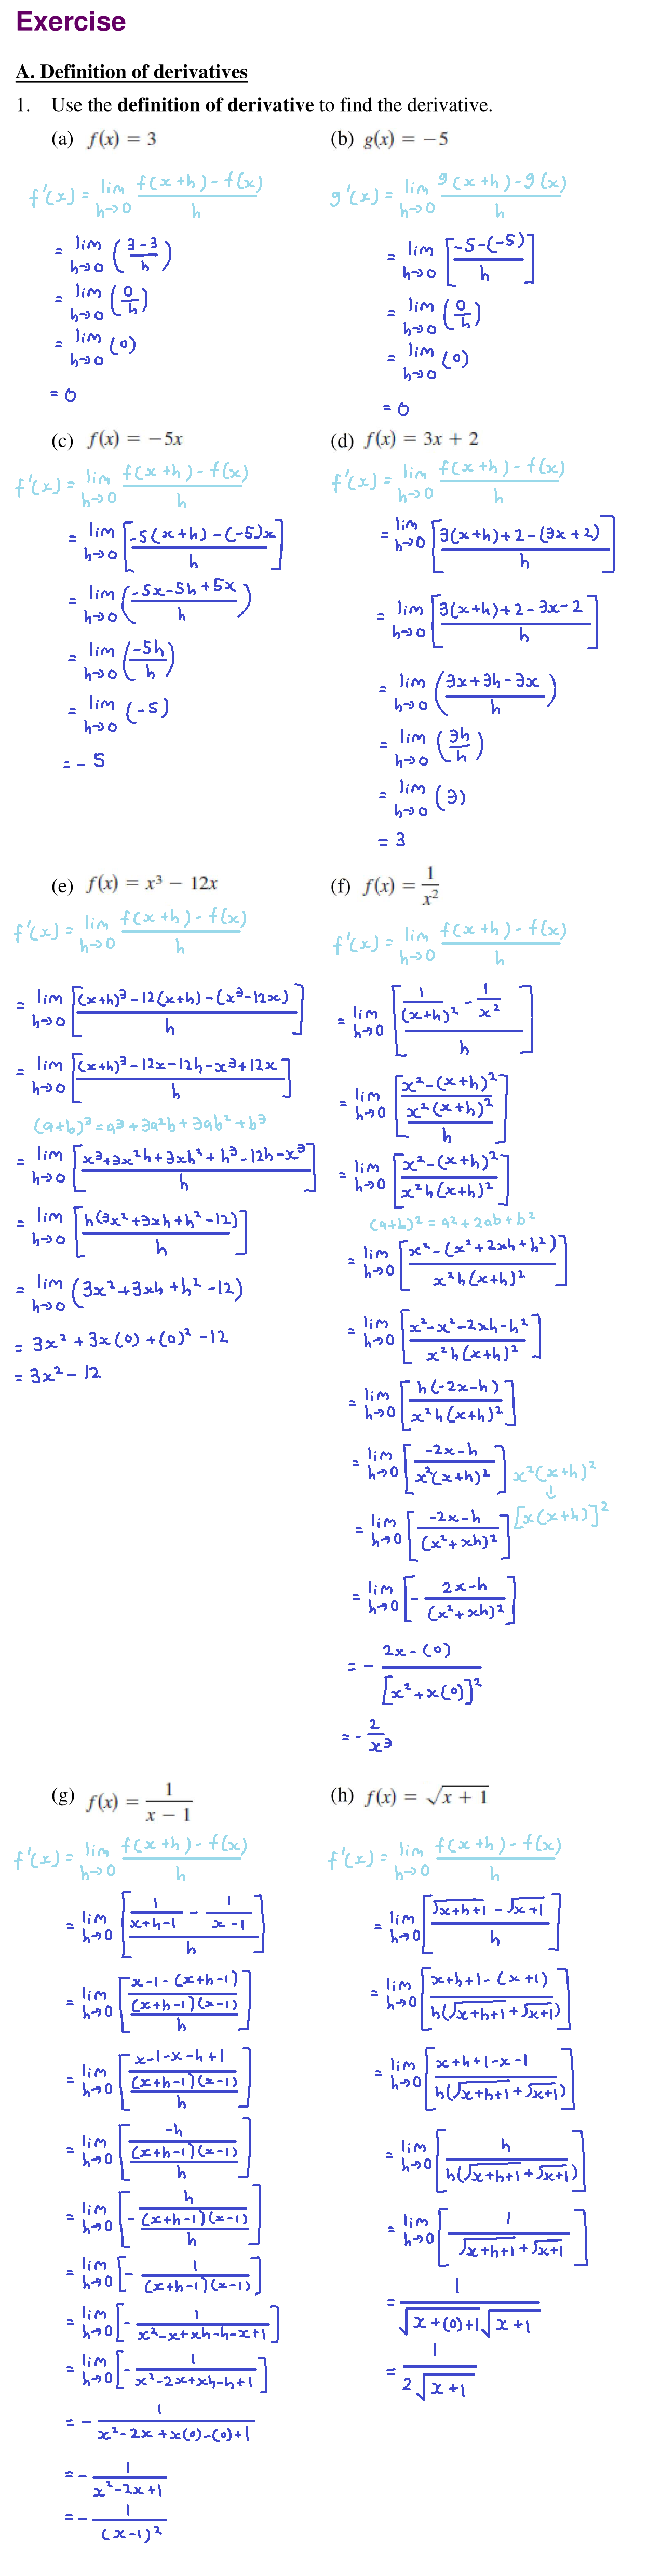 Exercise
A. Definition of derivatives
1. Use the definition of derivative to find the derivative.
(a) f(x) = 3
f'(x) = lim h→0 f(x+h) - f(x) / h
= lim h→0 (3-3 / h)
= lim h→0 (0/h)
= lim h→0 (0)
= 0
(b) g(x) = −5
g'(x) = lim h→0 g(x+h) - g(x) / h
= lim h→0 [-5-(-5) / h]
= lim h→0 (0/h)
= lim h→0 (0)
= 0
(c) f(x) = −5x
f'(x) = lim h→0 f(x+h) - f(x) / h
= lim h→0 [-5(x+h) - (-5)x / h]
= lim h→0 (-5x-5h+5x / h)
= lim h→0 (-5h / h)
= lim h→0 (-5)
= - 5
(d) f(x) = 3x + 2
f'(x) = lim h→0 f(x+h) - f(x) / h
= lim h→0 [3(x+h)+2-(3x+2) / h]
= lim h→0 [3(x+h)+2-3x-2 / h]
= lim h→0 (3x+3h-3x / h)
= lim h→0 (3h / h)
= lim h→0 (3)
= 3
(e) f(x) = x³ − 12x
f'(x) = lim h→0 f(x+h) - f(x) / h
= lim h→0 [(x+h)³-12(x+h)-(x³-12x) / h]
= lim h→0 [(x+h)³-12x-12h-x³+12x / h]
(a+b)³=a³+3a²b+3ab²+b³
= lim h→0 [x³+3x²h+3xh²+h³-12h-x³ / h]
= lim h→0 [h(3x²+3xh+h²-12) / h]
= lim h→0 (3x²+3xh+h²-12)
= 3x²+3x(0)+(0)²-12
= 3x²-12
(f) f(x) = 1/x²
f'(x) = lim h→0 f(x+h) - f(x) / h
= lim h→0 [1/(x+h)² - 1/x² / h]
= lim h→0 [x²-(x+h)² / x²(x+h)² / h]
= lim h→0 [x²-(x+h)² / x²h(x+h)²]
(a+b)²=a²+2ab+b²
= lim h→0 [x²-(x²+2xh+h²) / x²h(x+h)²]
= lim h→0 [x²-x²-2xh-h² / x²h(x+h)²]
= lim h→0 [h(-2x-h) / x²h(x+h)²]
= lim h→0 [-2x-h / x²(x+h)²] x²(x+h)²
↓
= lim h→0 [-2x-h / (x²+xh)²] [x(x+h)]²
= lim h→0 [- 2x-h / (x²+xh)²]
= - 2x-(0) / [x²+x(0)]²
= - 2/x³
(g) f(x) = 1 / x − 1
f'(x) = lim h→0 f(x+h) - f(x) / h
= lim h→0 [1/x+h-1 - 1/x-1 / h]
= lim h→0 [x-1-(x+h-1) / (x+h-1)(x-1) / h]
= lim h→0 [x-1-x-h+1 / (x+h-1)(x-1) / h]
= lim h→0 [-h / (x+h-1)(x-1) / h]
= lim h→0 [- h / (x+h-1)(x-1) / h]
= lim h→0 [- 1 / (x+h-1)(x-1)]
= lim h→0 [- 1 / x²-x+xh-h-x+1]
= lim h→0 [- 1 / x²-2x+xh-h+1]
= - 1 / x²-2x+x(0)-(0)+1
= - 1 / x²-2x+1
= - 1 / (x-1)²
(h) f(x) = √x + 1
f'(x) = lim h→0 f(x+h) - f(x) / h
= lim h→0 [√x+h+1 - √x+1 / h]
= lim h→0 [x+h+1-(x+1) / h(√x+h+1 + √x+1)]
= lim h→0 [x+h+1-x-1 / h(√x+h+1 + √x+1)]
= lim h→0 [h / h(√x+h+1 + √x+1)]
= lim h→0 [1 / √x+h+1 + √x+1]
= 1 / √x+(0)+1 √x+1
= 1 / 2√x+1